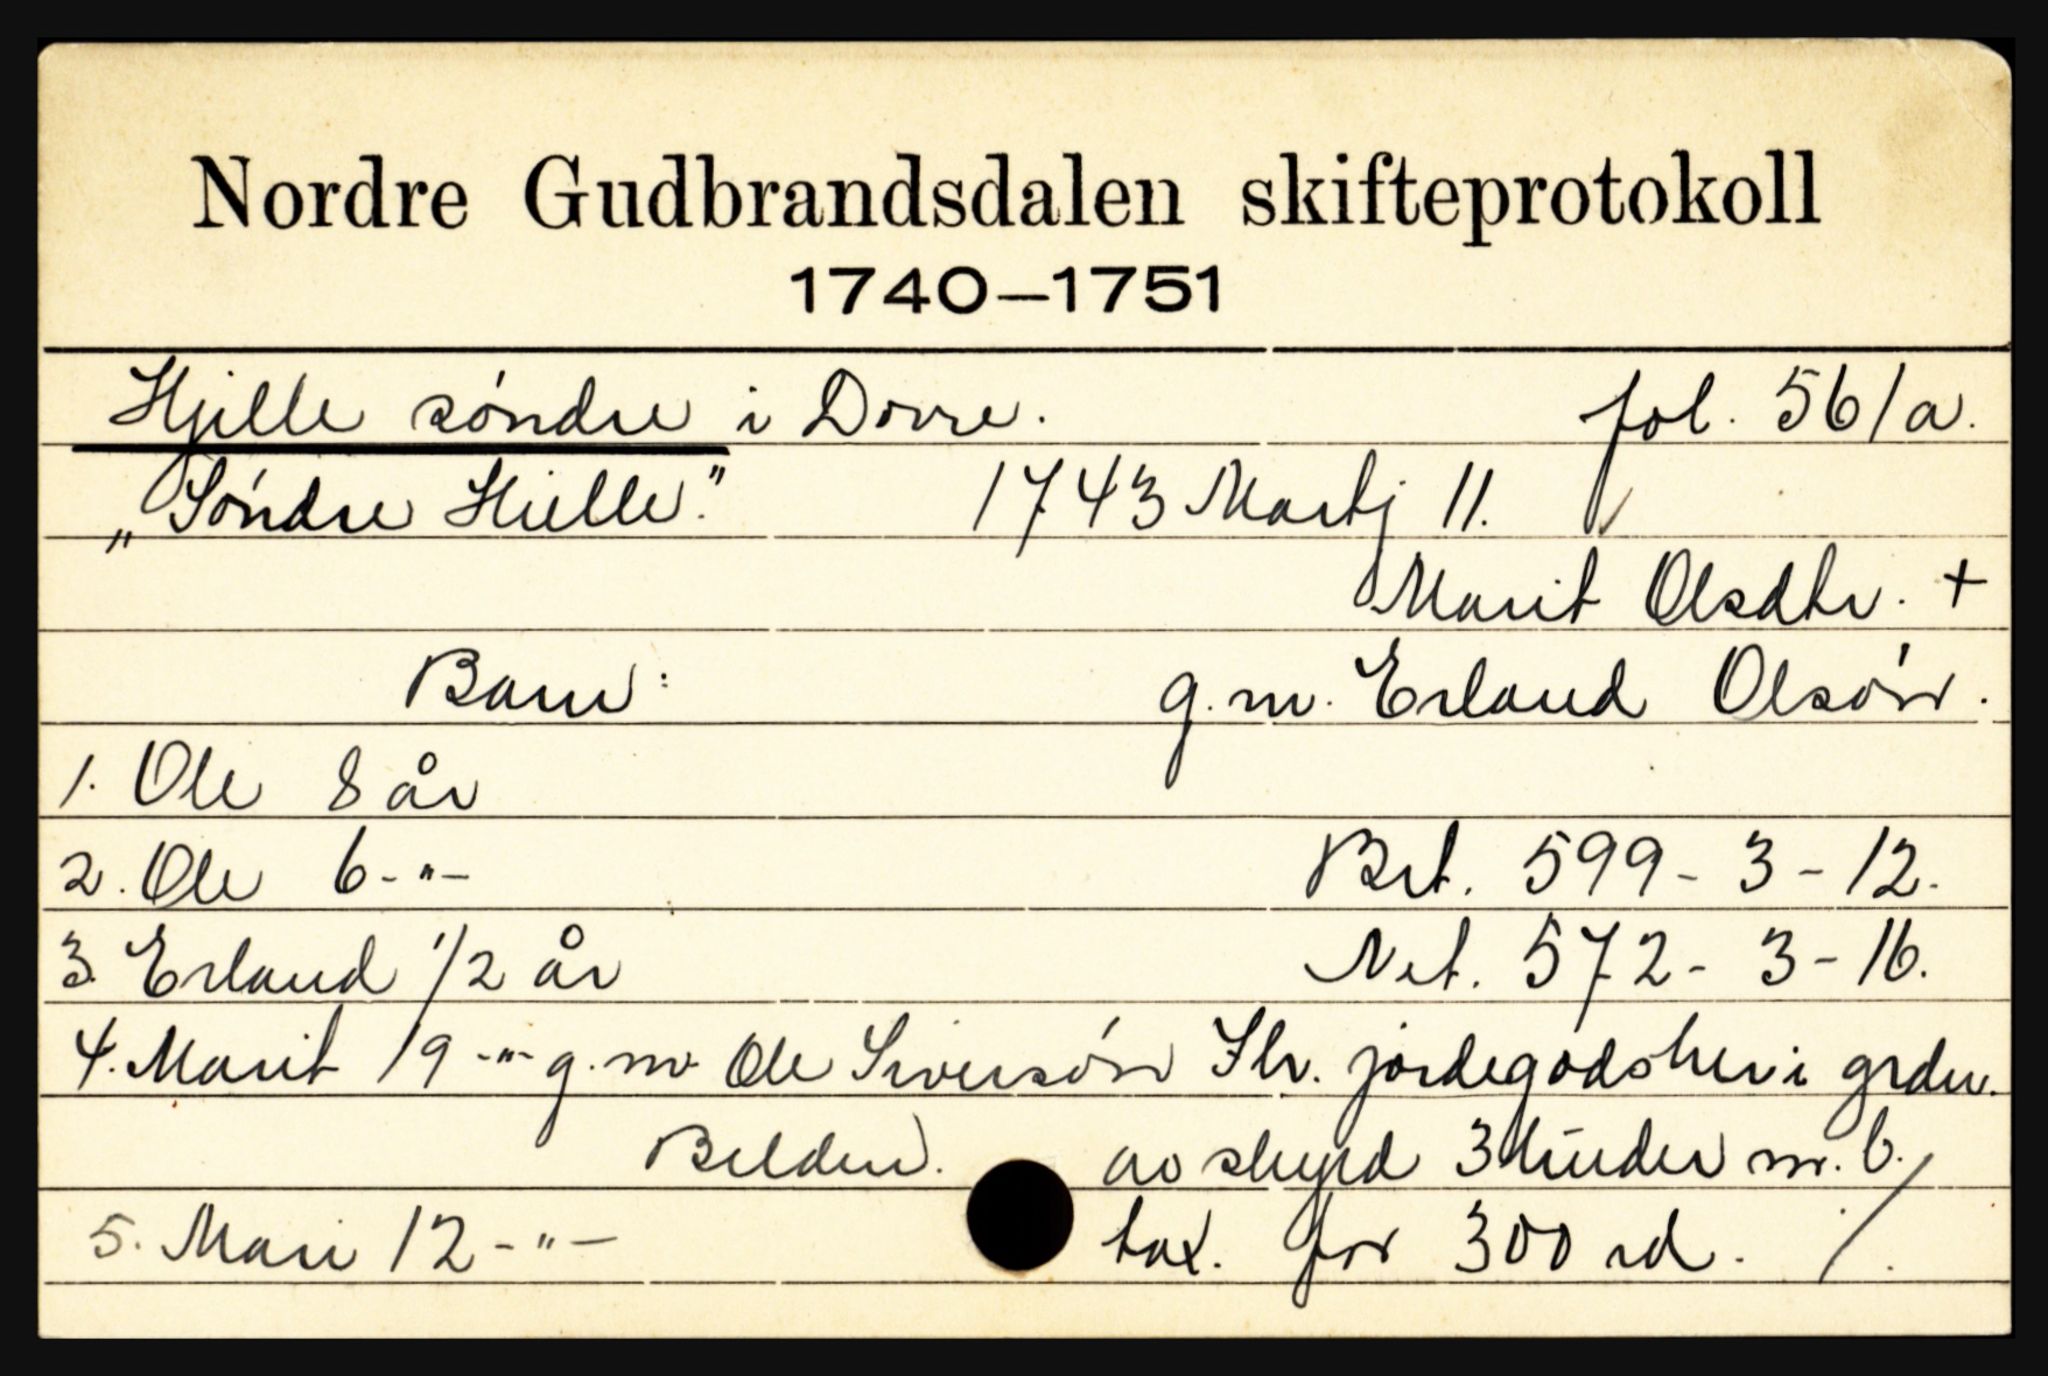 Nordre Gudbrandsdalen skifteprotokoll
1740—1751
Hjelle søndre i Dovre. fol. 56/a.
„Søndre Hielle." 1743 Martj 11.
Marit Olsdtr. +
Barn: g.m. Erland Olsøn.
1. Ole 8 år
2. Ole 6 -"- Brt. 599 - 3 - 12.
3. Erland 1/2 år Net. 572 - 3 - 16.
4. Marit 19 -"- g.m. Ole Siversøn Ilr. jordegods her i grden.
Belden. av skyld 3 huder m.b.
5. Mari 12 -"- tax. for 300 rd. ./.